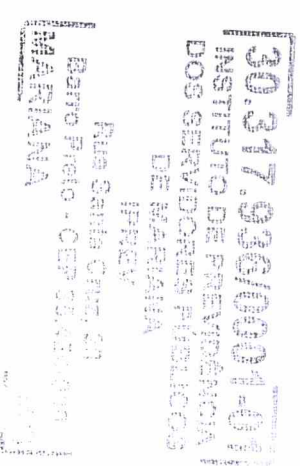 30.317.936/0001-0
INSTITUTO DE PREVIDÊNCIA
DOS SERVIDORES PUBLICOS
DE MARIANA
IPREV
Rua Santa Cruz,
Barro Preto - CEP
MARIANA